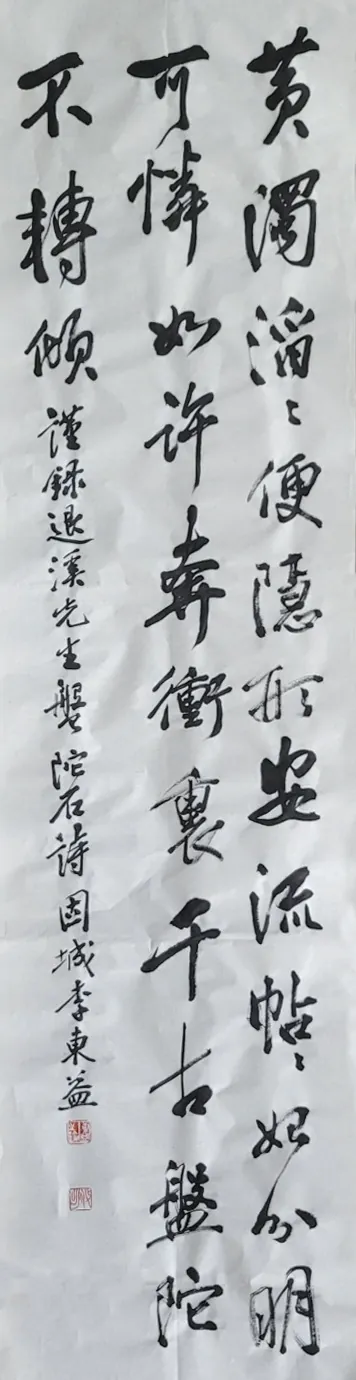 黄濁滔〻便隱形安流帖〻始分明
可憐如許奔衝裏千古盤陀
不轉傾 謹錄退溪先生盤陀石詩 固城李東益